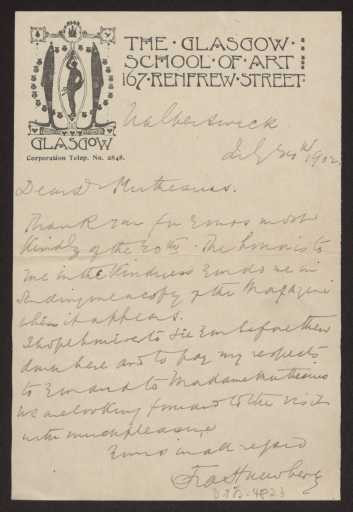 THE · GLASGOW ·
SCHOOL · OF · ART
167 · RENFREW · STREET
GLASGOW
Corporation Telep. No. 2848.
Walberswick
July 24th 1902
Dear Dr Muthesius.
Thank you for yours most
kindly of the 20th. The honor is to
me in the kindness you do me in
sending me a copy of the Magazine
when it appears.
I hope however to see you before then
down here and to pay my respects
to you and to Madame Muthesius
We are looking forward to the visit
with much pleasure
Yours in all regard
Fra H Newbery